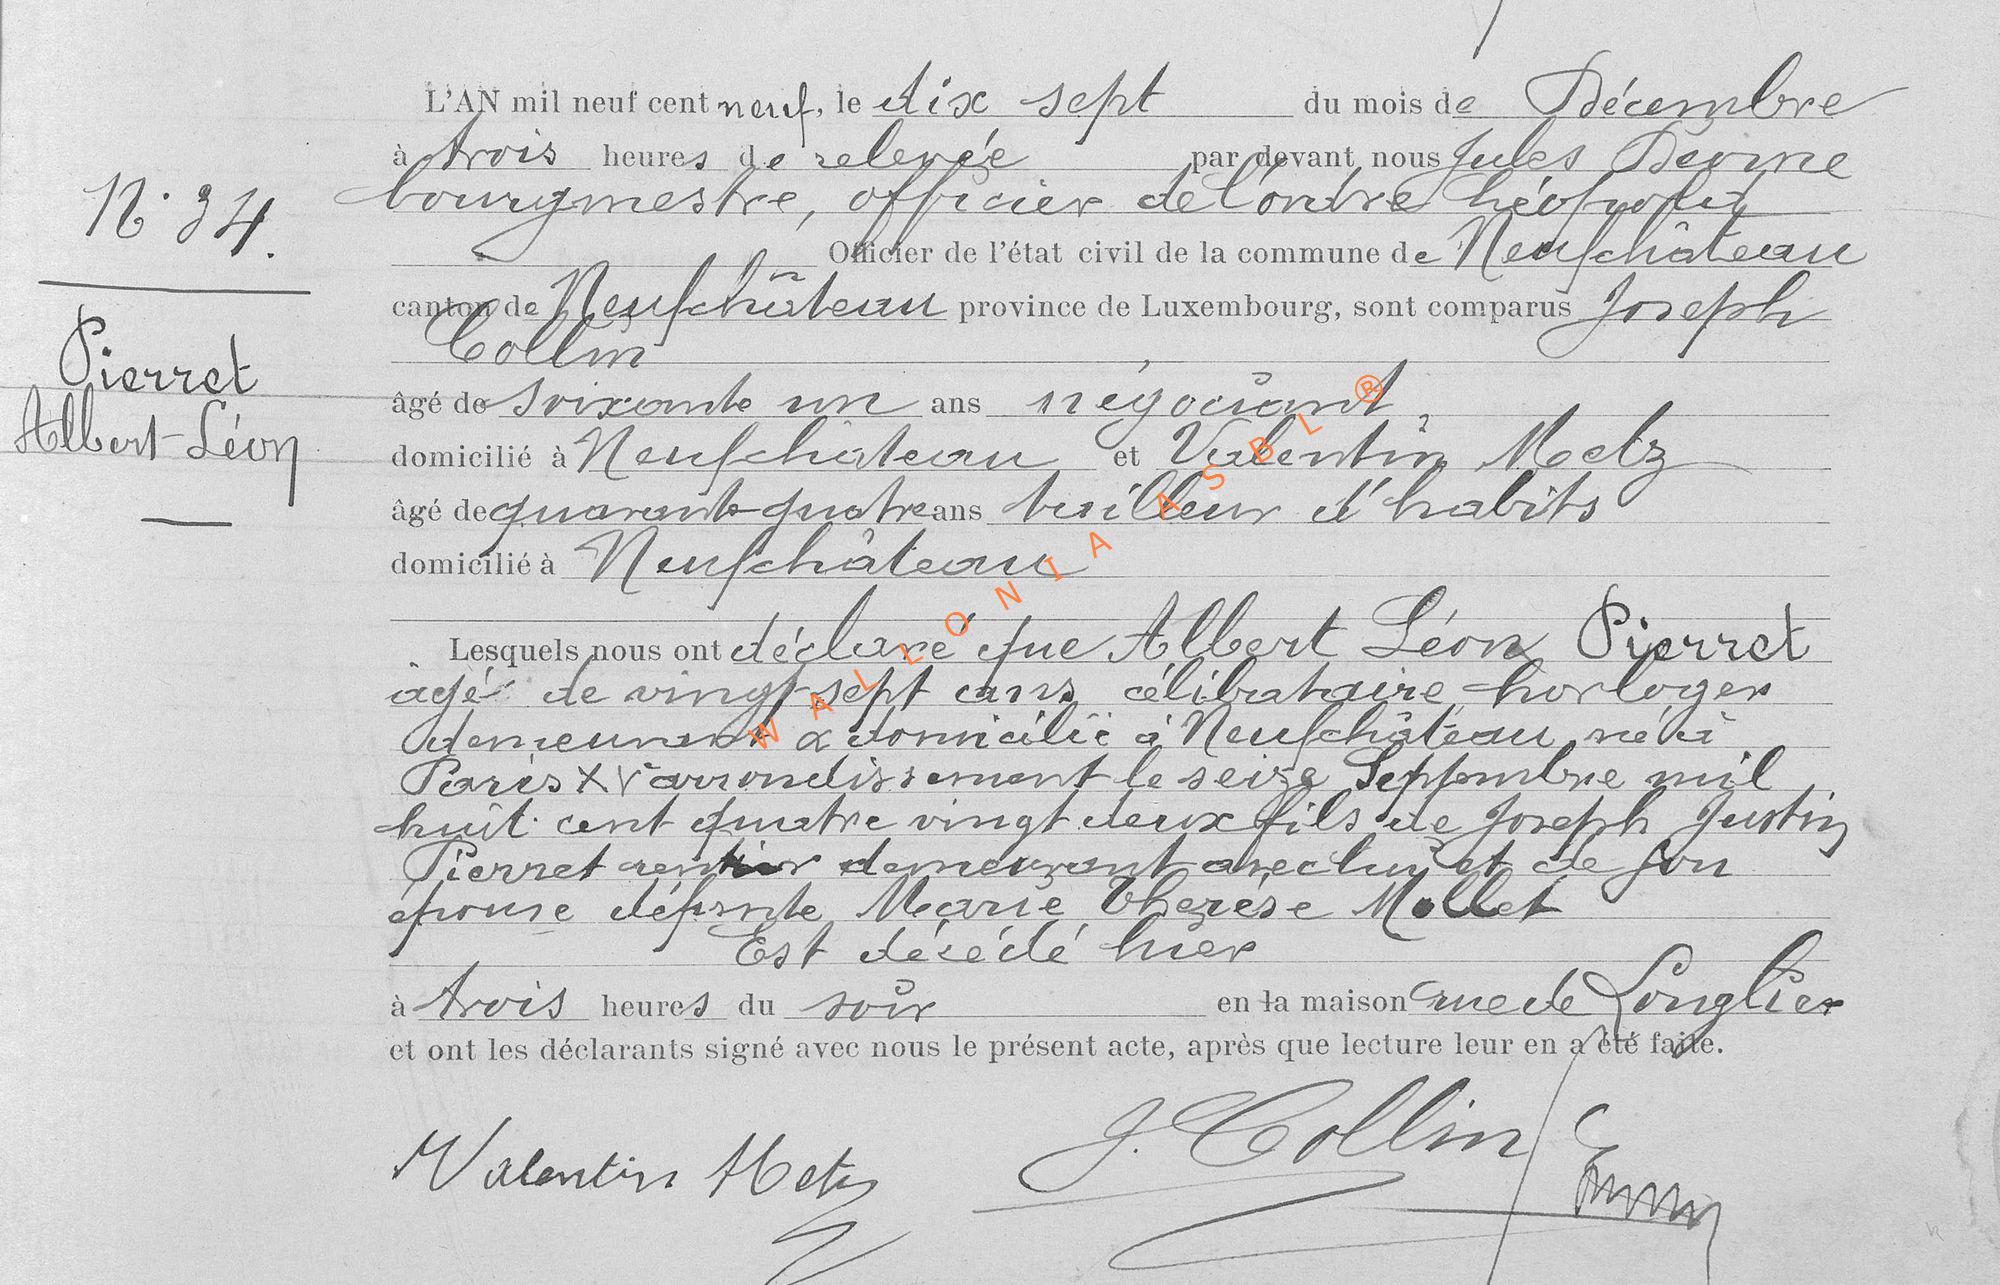 L'AN mil neuf cent neuf, le dix sept du mois de Décembre
à trois heures de relevée par devant nous Jules
bourgmestre, officier de l'ordre Léopold
Officier de l'état civil de la commune de Neufchâteau
N° 34.
canton de Neufchâteau province de Luxembourg, sont comparus Joseph
Collin
Pierret
Albert-Léon
âgé de soixante un ans négociant,
domicilié à Neufchâteau et Valentin Metz
âgé de quarante-quatre ans tailleur d'habits
domicilié à Neufchâteau
Lesquels nous ont déclaré que Albert Léon Pierret
âgé de vingt-sept ans célibataire horloger
demeurant & domicilié à Neufchâteau né à
Paris XV arrondissement le seize Septembre mil
huit cent quatre vingt deux fils de Joseph Justin
Pierret rentier demeurant avec lui et de son
épouse défunte Marie Thérèse Mollet
Est décédé hier
à trois heures du soir en la maison rue de Longlier
et ont les déclarants signé avec nous le présent acte, après que lecture leur en a été faite.
Valentin Metz
J. Collin
WALLONIA ASBL ®